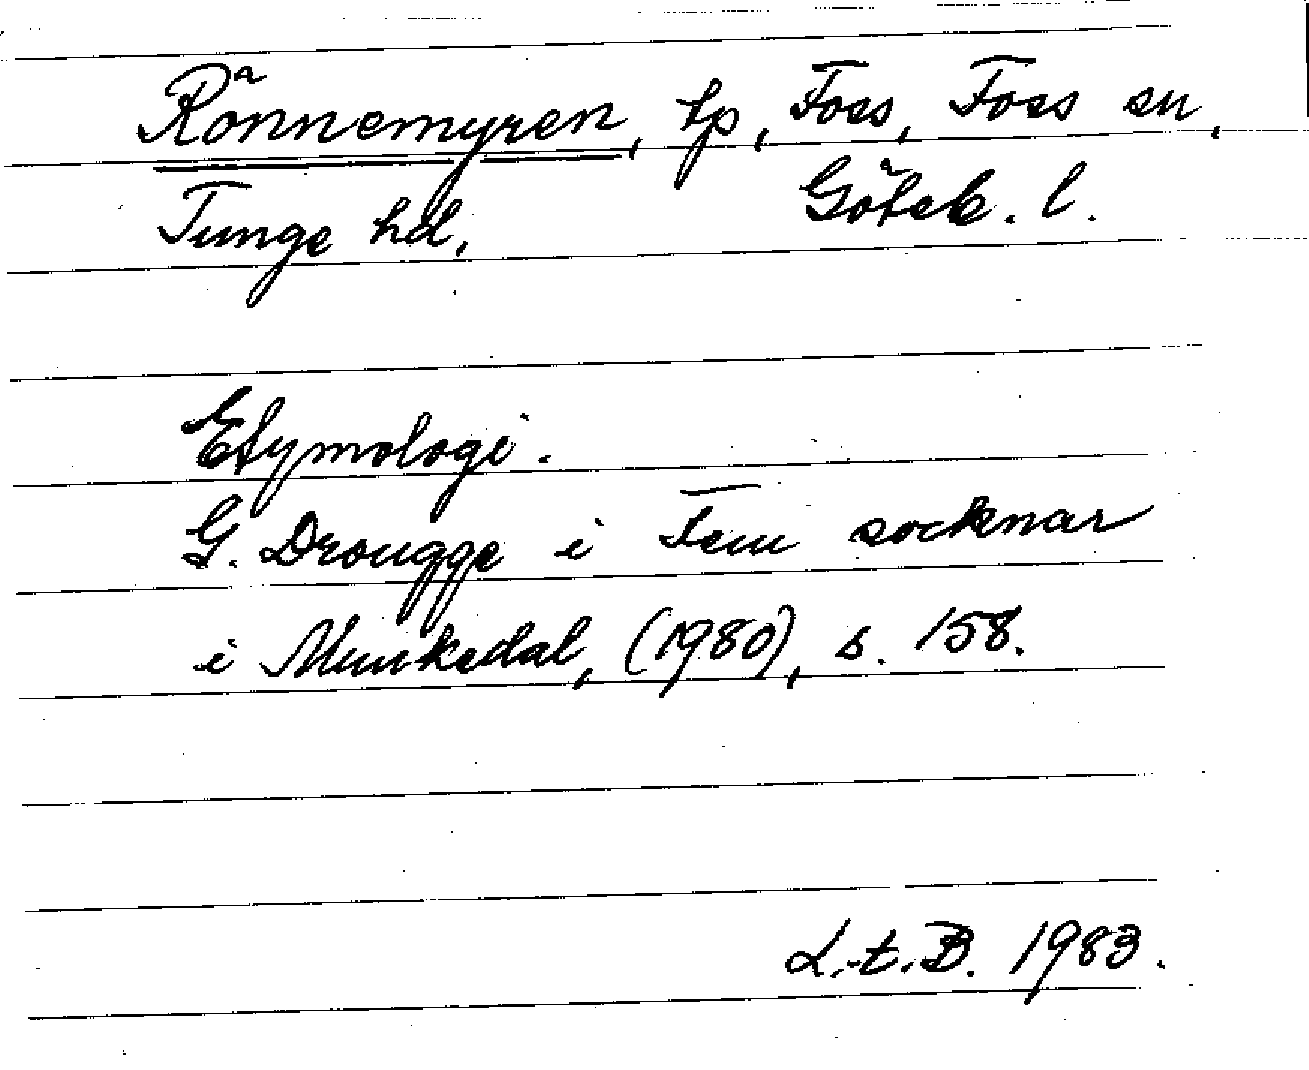 Rönnemyren, tp, Foss, Foss sn,
Tunge hd. Göteb. l.
Etymologi.
G. Drougge i Fem socknar
i Munkedal, (1980), s. 158.
L.-t.B. 1983.